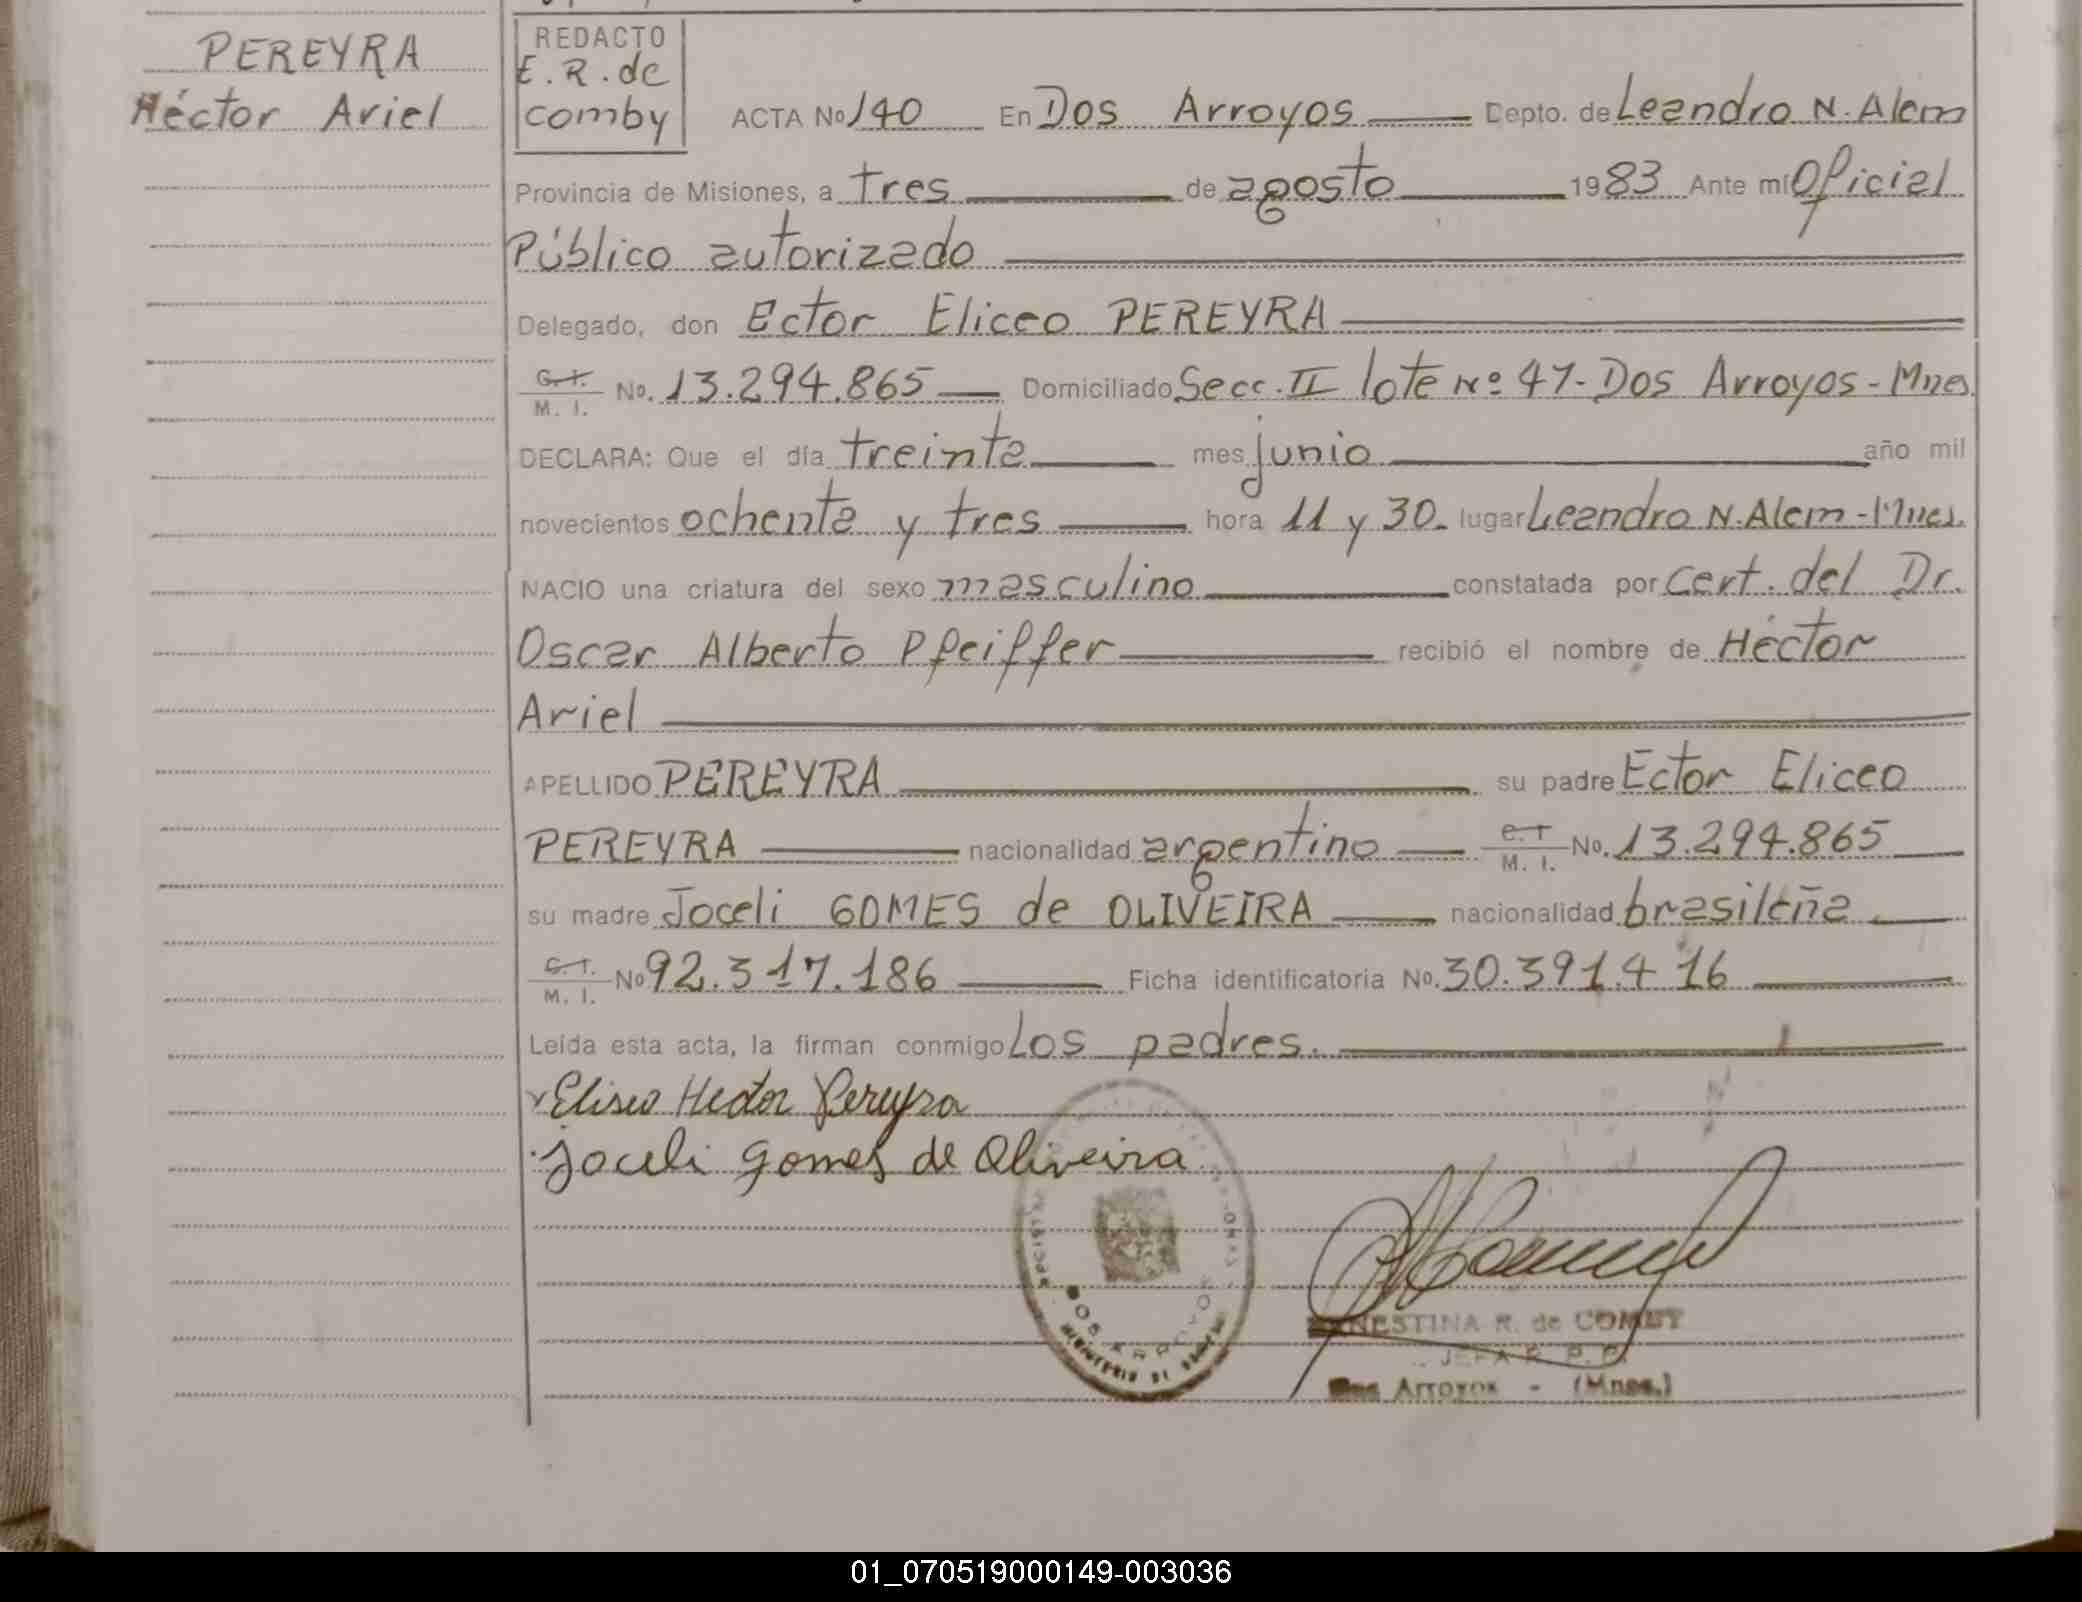 PEREYRA
Héctor Ariel
REDACTO
E.R. de
comby
ACTA No 140 En Dos Arroyos Depto. de Leandro N. Alem
Provincia de Misiones, a tres de agosto 1983 Ante mí Oficial
Público autorizado
Delegado, don Ector Eliceo PEREYRA
C.I. M. I. No. 13.294.865 Domiciliado Secc. II lote Nº 47- Dos Arroyos - Mnes
DECLARA: Que el día treinta mes junio año mil
novecientos ochenta y tres hora 11 y 30. lugar Leandro N. Alem - Mnes.
NACIO una criatura del sexo masculino constatada por Cert. del Dr.
Oscar Alberto Pfeiffer recibió el nombre de Héctor
Ariel
APELLIDO PEREYRA su padre Ector Eliceo
PEREYRA nacionalidad argentino M. I. No. 13.294.865
su madre Joceli GOMES de OLIVEIRA nacionalidad brasileña
M. I. No 92.317.186 Ficha identificatoria No. 30.391.416
Leída esta acta, la firman conmigo Los padres.
Eliseo Hector Pereyra
Joceli Gomes de Oliveira
DOS ARROYOS
ERNESTINA R. de COMBY
JEFA R. P. P.
Dos Arroyos - (Mnes.)
01_070519000149-003036